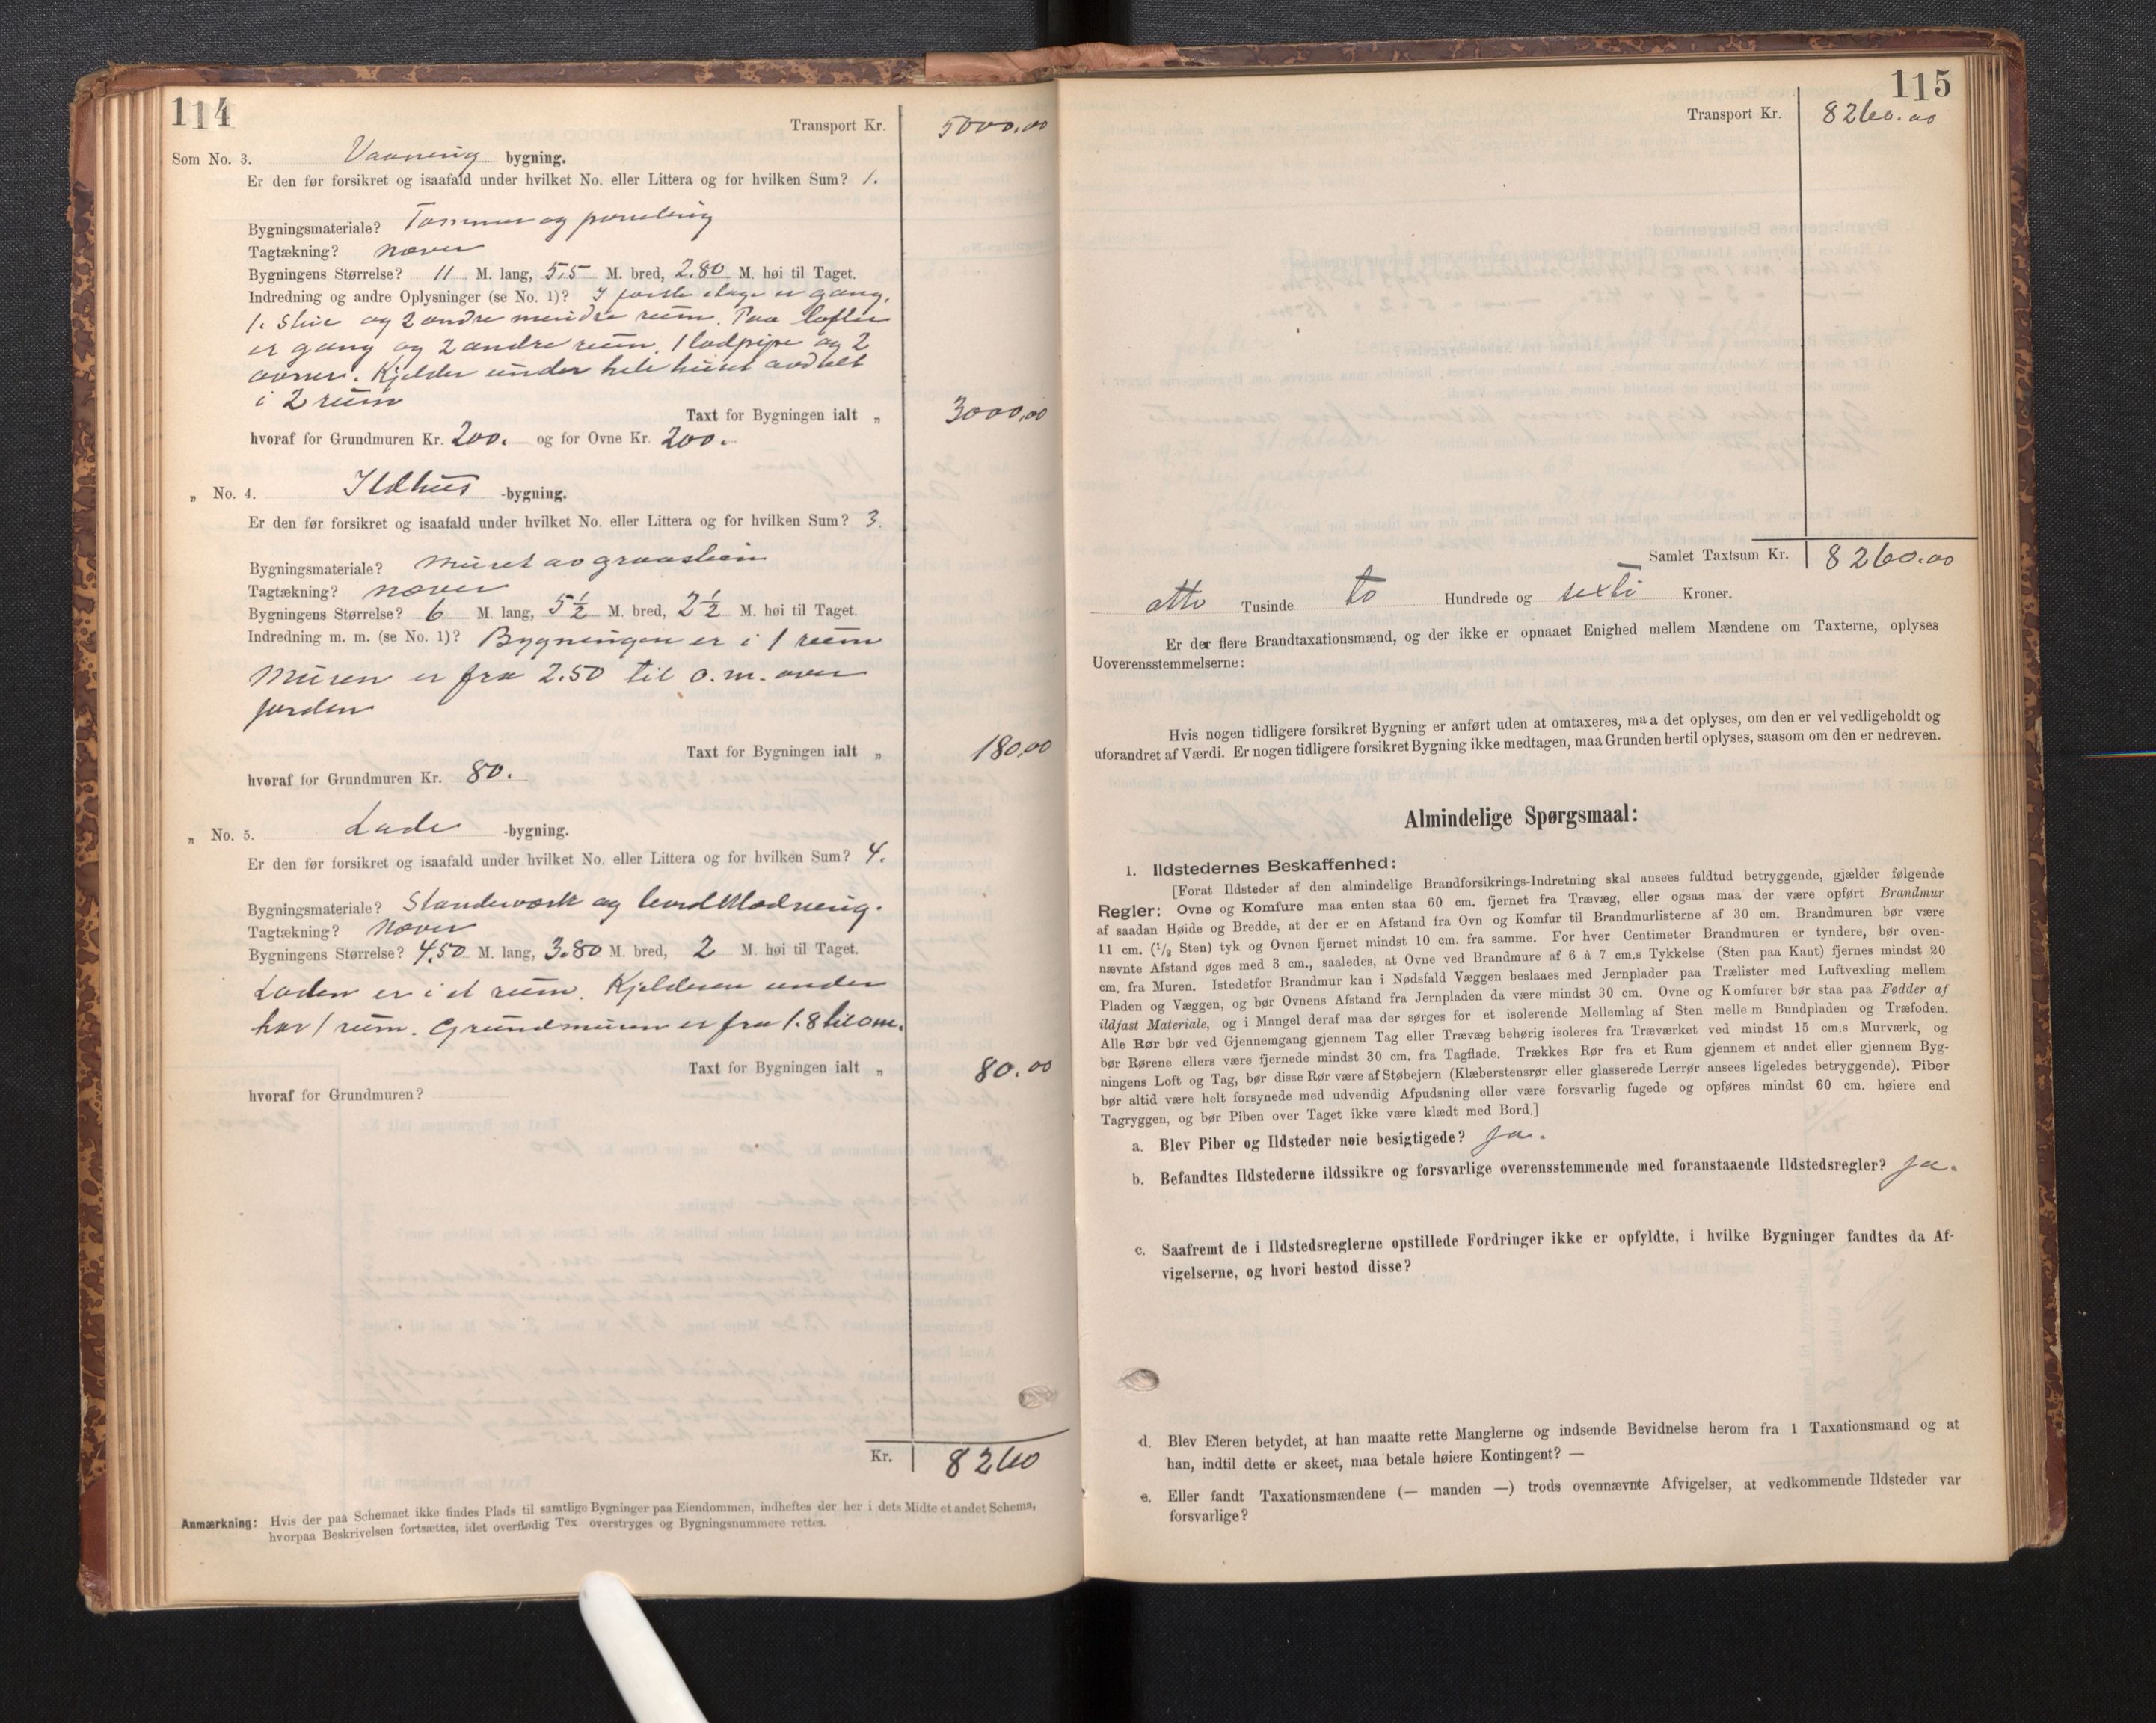 114
Transport Kr. 5000.00
Som No. 3. Vaaning bygning.
Er den før forsikret og isaafald under hvilket No. eller Littera og for hvilken Sum? 1.
Bygningsmateriale? Tømmer og paneling
Tagtækning? næver
Bygningens Størrelse? 11 M. lang, 5,5 M. bred, 2.80 M. høi til Taget.
Indredning og andre Oplysninger (se No. 1)? I første etage er gang,
1. stue og 2 andre mindre rum. Paa loftet
er gang og 2 andre rum. 1 lodpipe og 2
ovner. Kjelder under hele huset avdelt
i 2 rum
Taxt for Bygningen ialt „ 3000,00
hvoraf for Grundmuren Kr. 200. og for Ovne Kr. 200.
„ No. 4. Ildhus -bygning.
Er den før forsikret og isaafald under hvilket No. eller Littera og for hvilken Sum? 3.
Bygningsmateriale? Muret av graastein
Tagtækning? næver
Bygningens Størrelse? 6 M. lang, 5 1/2 M. bred, 2 1/2 M. høi til Taget.
Indredning m. m. (se No. 1)? Bygningen er i 1 rum
Muren er fra 2.50 til o.m. over
jorden
Taxt for Bygningen ialt „ 180,00
hvoraf for Grundmuren Kr. 80.
„ No. 5. Lade -bygning.
Er den før forsikret og isaafald under hvilket No. eller Littera og for hvilken Sum? 4.
Bygningsmateriale? Standerværk og bordklædning.
Tagtækning? Næver
Bygningens Størrelse? 4,50 M. lang, 3.80 M. bred, 2 M. høi til Taget.
Laden er i et rum. Kjelderen under
har 1 rum. Grundmuren er fra 1.8 til om.
Taxt for Bygningen ialt „ 80.00
hvoraf for Grundmuren?
Kr. 8260
Anmærkning: Hvis der paa Schemaet ikke findes Plads til samtlige Bygninger paa Eiendommen, indheftes der her i dets Midte et andet Schema,
hvorpaa Beskrivelsen fortsættes, idet overflødig Tex overstryges og Bygningsnummere rettes.
115
Transport Kr. 8260.00
Samlet Taxtsum Kr. 8260.00
otte Tusinde to Hundrede og sexti Kroner.
Er der flere Brandtaxationsmænd, og der ikke er opnaaet Enighed mellem Mændene om Taxterne, oplyses
Uoverensstemmelserne:
Hvis nogen tidligere forsikret Bygning er anført uden at omtaxeres, maa det oplyses, om den er vel vedligeholdt og
uforandret af Værdi. Er nogen tidligere forsikret Bygning ikke medtagen, maa Grunden hertil oplyses, saasom om den er nedreven.
Almindelige Spørgsmaal:
1. Ildstedernes Beskaffenhed:
[Forat Ildsteder af den almindelige Brandforsikrings-Indretning skal ansees fuldtud betryggende, gjælder følgende
Regler: Ovne og Komfure maa enten staa 60 cm. fjernet fra Trævæg, eller ogsaa maa der være opført Brandmur
af saadan Høide og Bredde, at der er en Afstand fra Ovn og Komfur til Brandmurlisterne af 30 cm. Brandmuren bør være
11 cm. (1/2 Sten) tyk og Ovnen fjernet mindst 10 cm. fra samme. For hver Centimeter Brandmuren er tyndere, bør oven-
nævnte Afstand øges med 3 cm., saaledes, at Ovne ved Brandmure af 6 à 7 cm.s Tykkelse (Sten paa Kant) fjernes mindst 20
cm. fra Muren. Istedetfor Brandmur kan i Nødsfald Væggen beslaaes med Jernplader paa Trælister med Luftvexling mellem
Pladen og Væggen, og bør Ovnens Afstand fra Jernpladen da være mindst 30 cm. Ovne og Komfurer bør staa paa Fødder af
ildfast Materiale, og i Mangel deraf maa der sørges for et isolerende Mellemlag af Sten mellem Bundpladen og Træfoden.
Alle Rør bør ved Gjennemgang gjennem Tag eller Trævæg behørig isoleres fra Træværket ved mindst 15 cm.s Murværk, og
bør Rørene ellers være fjernede mindst 30 cm. fra Tagflade. Trækkes Rør fra et Rum gjennem et andet eller gjennem Byg-
ningens Loft og Tag, bør disse Rør være af Støbejern (Klæberstensrør eller glasserede Lerrør ansees ligeledes betryggende). Piber
bør altid være helt forsynede med udvendig Afpudsning eller være forsvarlig fugede og opføres mindst 60 cm. høiere end
Tagryggen, og bør Piben over Taget ikke være klædt med Bord.]
a. Blev Piber og Ildsteder nøie besigtigede? ja.
b. Befandtes Ildstederne ildssikre og forsvarlige overensstemmende med foranstaaende Ildstedsregler? ja.
c. Saafremt de i Ildstedsreglerne opstillede Fordringer ikke er opfyldte, i hvilke Bygninger fandtes da Af-
vigelserne, og hvori bestod disse?
d. Blev Eieren betydet, at han maatte rette Manglerne og indsende Bevidnelse herom fra 1 Taxationsmand og at
han, indtil dette er skeet, maa betale høiere Kontingent? —
e. Eller fandt Taxationsmændene (— manden —) trods ovennævnte Afvigelser, at vedkommende Ildsteder var
forsvarlige?